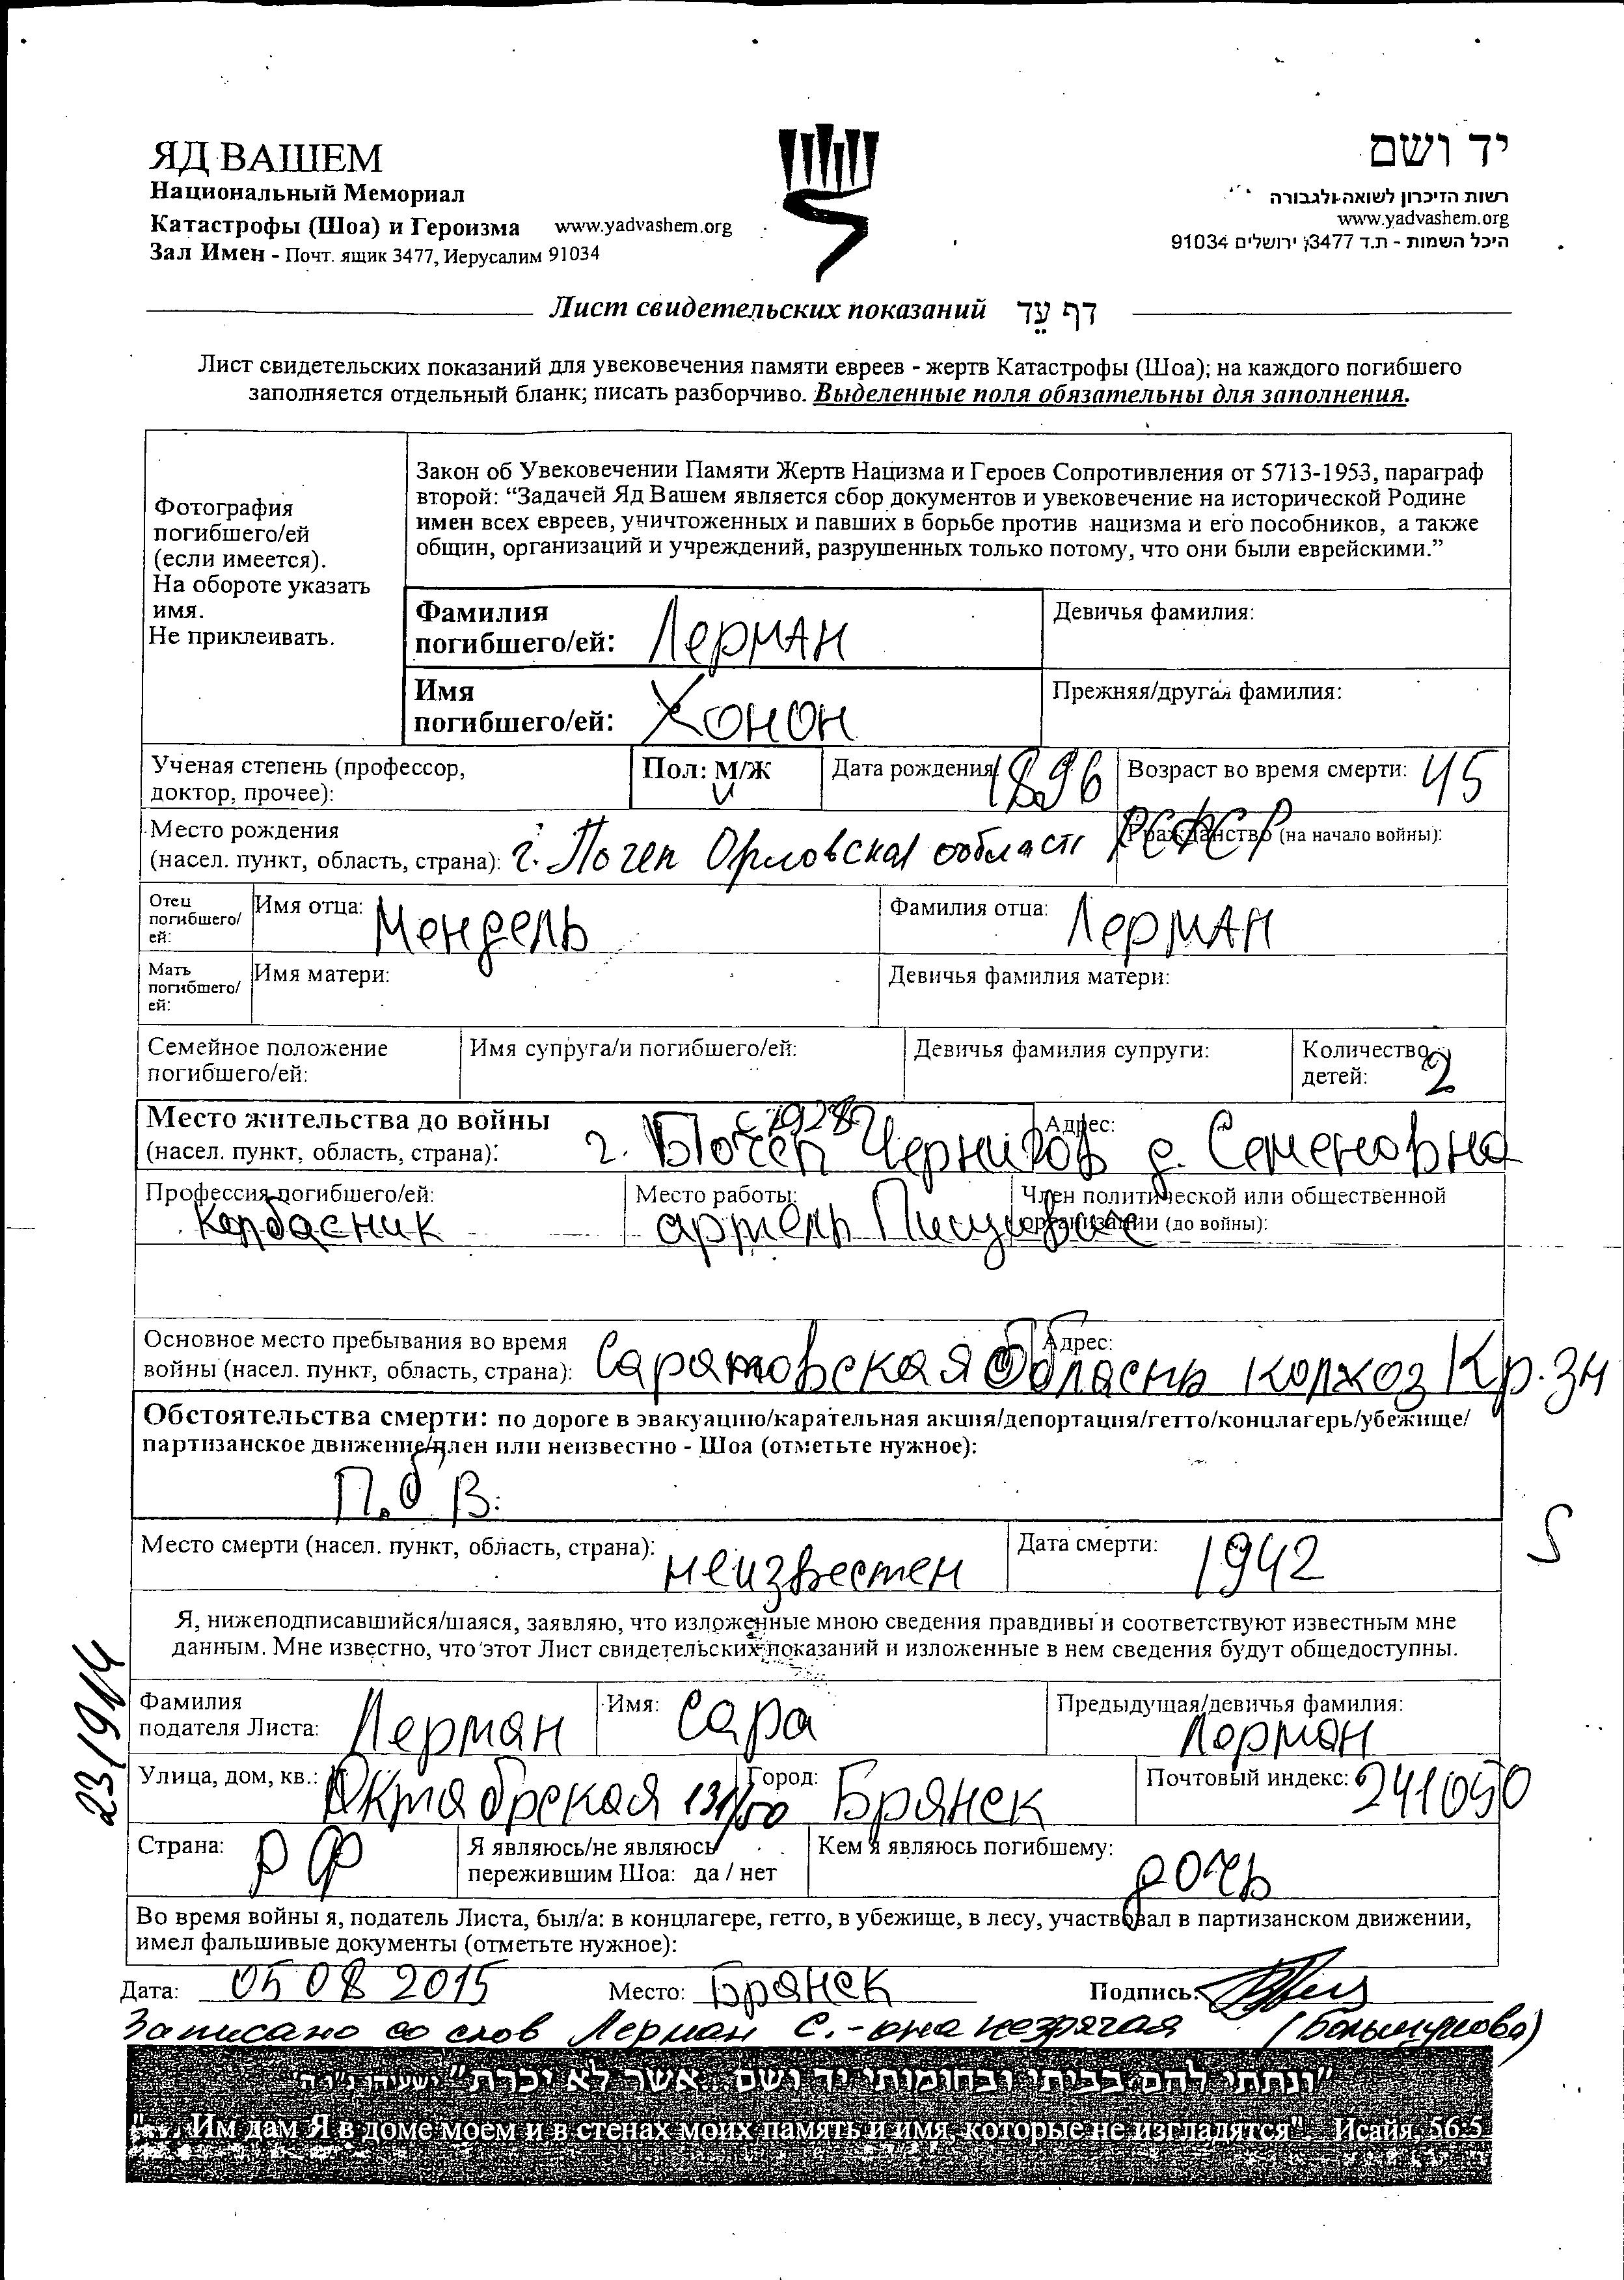 ЯД ВАШЕМ
Национальный Мемориал
Катастрофы (Шоа) и Героизма www.yadvashem.org
Зал Имен - Почт. ящик 3477, Иерусалим 91034
יד ושם
רשות הזיכרון לשואה ולגבורה
www.yadvashem.org
היכל השמות - ת.ד 3477, ירושלים 91034
Лист свидетельских показаний דף עֵד
Лист свидетельских показаний для увековечения памяти евреев - жертв Катастрофы (Шоа); на каждого погибшего
заполняется отдельный бланк; писать разборчиво. Выделенные поля обязательны для заполнения.
Фотография
погибшего/ей
(если имеется).
На обороте указать
имя.
Не приклеивать.
Закон об Увековечении Памяти Жертв Нацизма и Героев Сопротивления от 5713-1953, параграф
второй: “Задачей Яд Вашем является сбор документов и увековечение на исторической Родине
имен всех евреев, уничтоженных и павших в борьбе против нацизма и его пособников, а также
общин, организаций и учреждений, разрушенных только потому, что они были еврейскими.”
Фамилия
погибшего/ей: Лерман
Девичья фамилия:
Имя
погибшего/ей: Хонон
Прежняя/другая фамилия:
Ученая степень (профессор,
доктор, прочее):
Пол: М/Ж
Дата рождения 1896
Возраст во время смерти: 45
Место рождения
(насел. пункт, область, страна): г. Почеп Орловская область РСФСР
Гражданство (на начало войны):
Отец
погибшего/
ей:
Имя отца: Мендель
Фамилия отца: Лерман
Мать
погибшего/
ей:
Имя матери:
Девичья фамилия матери:
Семейное положение
погибшего/ей:
Имя супруга/и погибшего/ей:
Девичья фамилия супруги:
Количество
детей: 2
Место жительства до войны
(насел. пункт, область, страна): г. Почеп с 1928 Чернигов
Адрес: д. Семеновна
Профессия погибшего/ей:
колбасник
Место работы:
артель
Член политической или общественной
организации (до войны):
Основное место пребывания во время
войны (насел. пункт, область, страна): Саратовская область
Адрес:
колхоз Кр. Зн
Обстоятельства смерти: по дороге в эвакуацию/карательная акция/депортация/гетто/концлагерь/убежище/
партизанское движение/плен или неизвестно - Шоа (отметьте нужное):
П. б В.
Место смерти (насел. пункт, область, страна): неизвестен
Дата смерти: 1942
S
Я, нижеподписавшийся/шаяся, заявляю, что изложенные мною сведения правдивы и соответствуют известным мне
данным. Мне известно, что этот Лист свидетельских показаний и изложенные в нем сведения будут общедоступны.
23/914
Фамилия
подателя Листа: Лерман
Имя: Сара
Предыдущая/девичья фамилия:
Лерман
Улица, дом, кв.: Октябрская 131/50
Город: Брянск
Почтовый индекс: 241050
Страна: РФ
Я являюсь/не являюсь
пережившим Шоа: да / нет
Кем я являюсь погибшему:
дочь
Во время войны я, податель Листа, был/а: в концлагере, гетто, в убежище, в лесу, участвовал в партизанском движении,
имел фальшивые документы (отметьте нужное):
Дата: 05 08 2015 Место: Брянск Подпись:
Записано со слов Лерман С. - она незрячая (Большунова)
"ונתתי להם בביתי ובחומותי יד ושם...אשר לא יכרת" ישעיהו נ"ו ה'
"... Им дам Я в доме моем и в стенах моих память и имя, которые не изгладятся" Исайя, 56:5